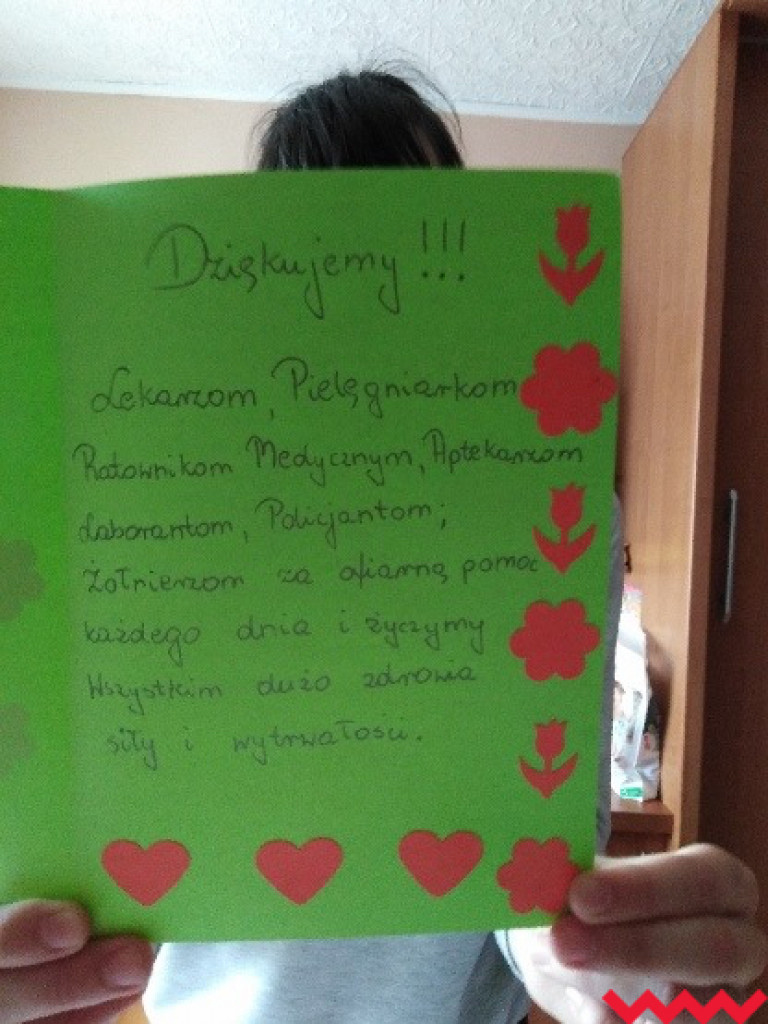 Dziękujemy !!!
Lekarzom, Pielęgniarkom
Ratownikom Medycznym, Aptekarzom
Laborantom, Policjantom;
Żołnierzom za ofiarną pomoc
każdego dnia i życzymy
Wszystkim dużo zdrowia
siły i wytrwałości.